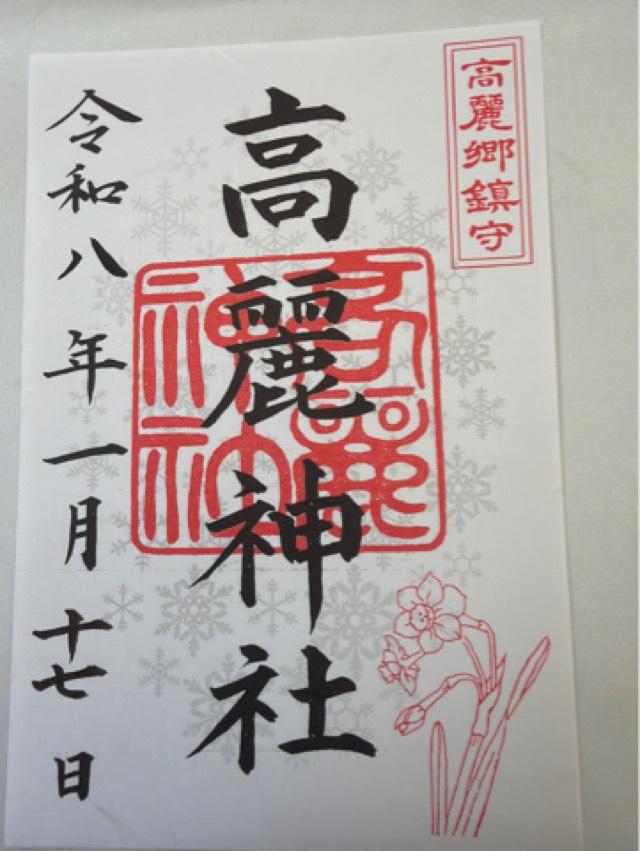 高麗郷鎮守
高麗神社
令和八年一月十七日
高麗神社